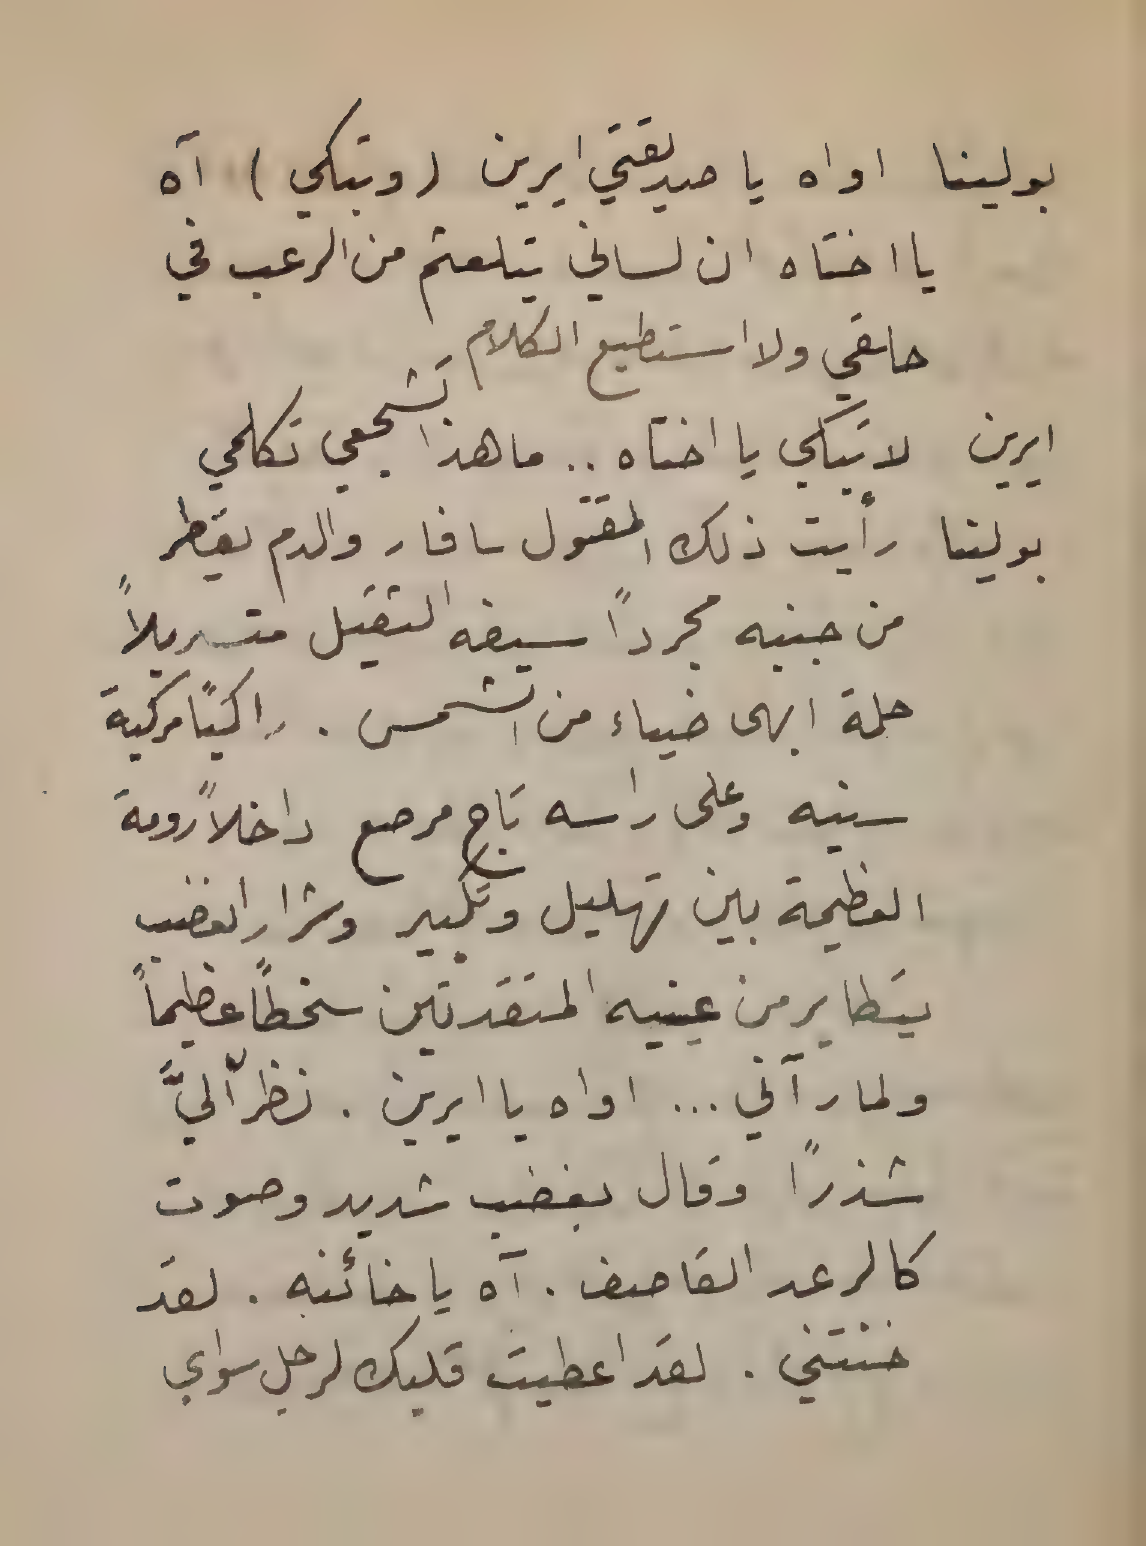 بولينا اواه يا صديقتي ايرين (وتبكي) آه
يا اختاه ان لساني يتلعثم من الرعب في
حلقي ولا استطيع الكلام
ايرين لا تبكي يا اختاه .. ما هذا تشجعي تكلمي
بولينا رأيت ذلك المقتول سافار والدم يقطر
من جنبه مجرداً سيفه الثقيل متسربلاً
حلة ابهى ضياء من الشمس . راكباً مركبة
سنيه وعلى راسه تاج مرصع داخلاً رومة
العظيمة بين تهليل وتكبير وشرار الغضب
يتطاير من عينيه المتقدتين سخطاً عظيماً
ولما رآني ... اواه يا ايرين . نظر اليَّ
شذراً وقال بغضب شديد وصوت
كالرعد القاصف . آه يا خائنه . لقد
خنتني . لقد اعطيت قلبك لرجل سواي